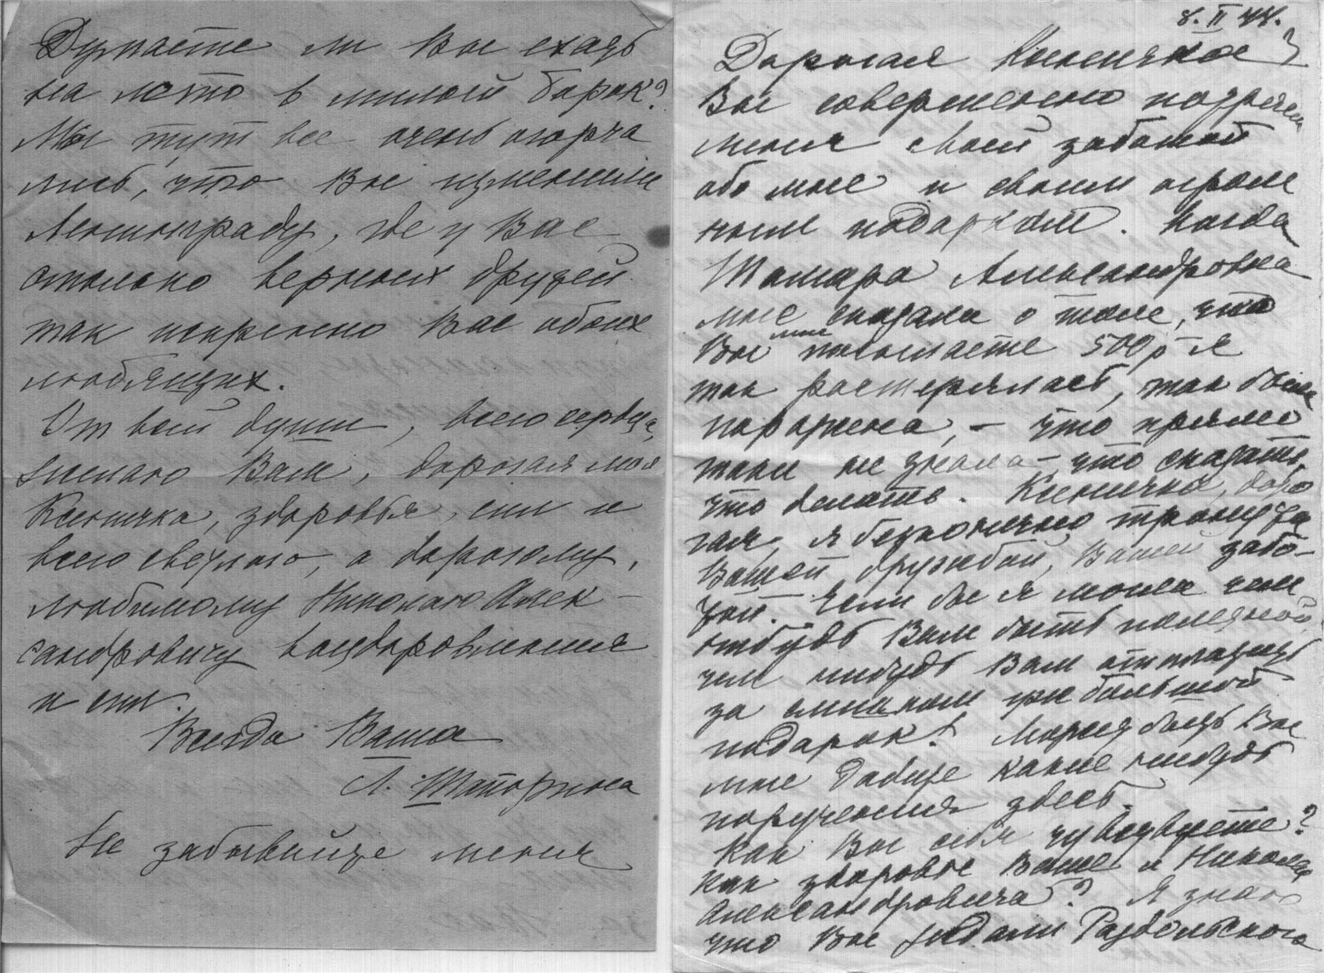 8. II 44.
Дорогая Ксеничка
Вы совершенно
меня своей заботой
обо мне и своим огром
ным подарком. Когда
Тамара Александровна
мне сказала о том, что
Вы мне посылаете 500 р. я
так растерялась, так была
поражена, – что прямо
таки не знала – что сказать,
что делать. Ксеничка, доро
гая, я бесконечно тронута
Вашей дружбой, Вашей забо-
той. Если бы я могла чем
нибудь Вам быть полезной,
чем нибудь Вам отплатить
за слишком уж большой
подарок! Может быть Вы
мне дадите какие нибудь
поручения здесь.
Как Вы себя чувствуете?
Как здоровье Ваше и Николая
Александровича? Я знаю
что Вы видали Раздольского
Думаете ли Вы ехать
на лето в милый барак?
Мы тут все очень огорча
лись, что Вы изменили
Ленинграду, где у Вас
столько верных друзей
так искренно Вас обоих
любящих.
От всей души, всего сердца,
желаю Вам, дорогая моя
Ксеничка, здоровья, сил и
всего светлого, а дорогому,
любимому Николаю Алек-
сандровичу выздоровления
и сил.
Всегда Ваша
Л. Шапорина
Не забывайте меня